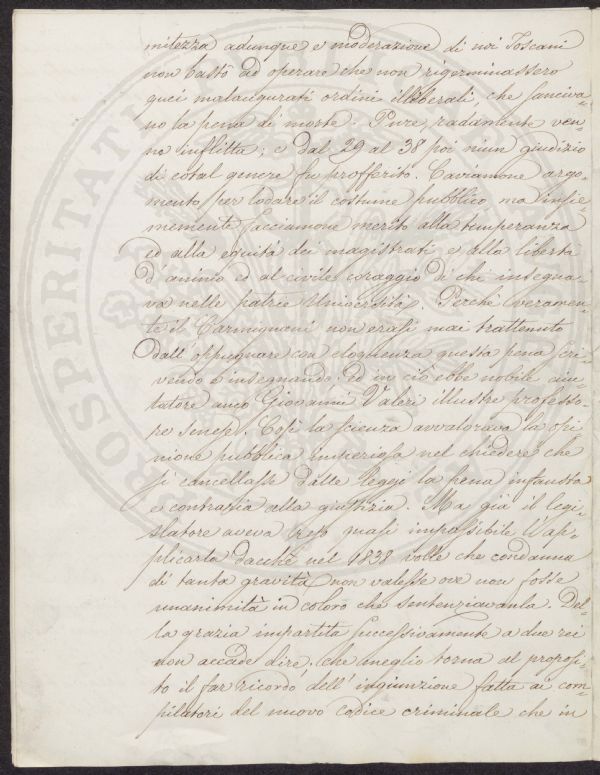 mitezza adunque e moderazione di noi Toscani
non bastò ad operare che non rigerminassero
quei malaugurati ordini illiberali, che sanciva=
no la pena di morte. Pure, radamente ven=
ne inflitta; e dal 29 al 38 poi niun giudizio
di cotal genere fu profferito. Caviamone argo=
mento per lodare il costume pubblico ma insie=
memente facciamone merito alla temperanza
ed alla equità dei magistrati e alla libertà
d'animo ed al civile coraggio di chi insegna=
va nelle patrie Università. Perchè veramen=
te il Carmignani non erasi mai trattenuto
dall'oppugnare con eloquenza questa pena scri=
vendo e insegnando: ed in ciò ebbe nobile aiu=
tatore anco Giovanni Valeri illustre professo=
re senese. Così la scienza avvalorava la opi=
nione pubblica imperiosa nel chiedere che
si cancellasse dalle leggi la pena infausta
e contraria alla giustizia. Ma già il legi=
slatore aveva reso quasi impossibile l'ap=
plicarla dacchè nel 1838 volle che condanna
di tanta gravità non valesse ove non fosse
unanimità in coloro che sentenziavanla. Del=
la grazia impartita successivamente a due rei
non accade dire, che meglio torna al proposi=
to il far ricordo dell'ingiunzione fatta ai com=
pilatori del nuovo codice criminale che in
PROSPERITATI